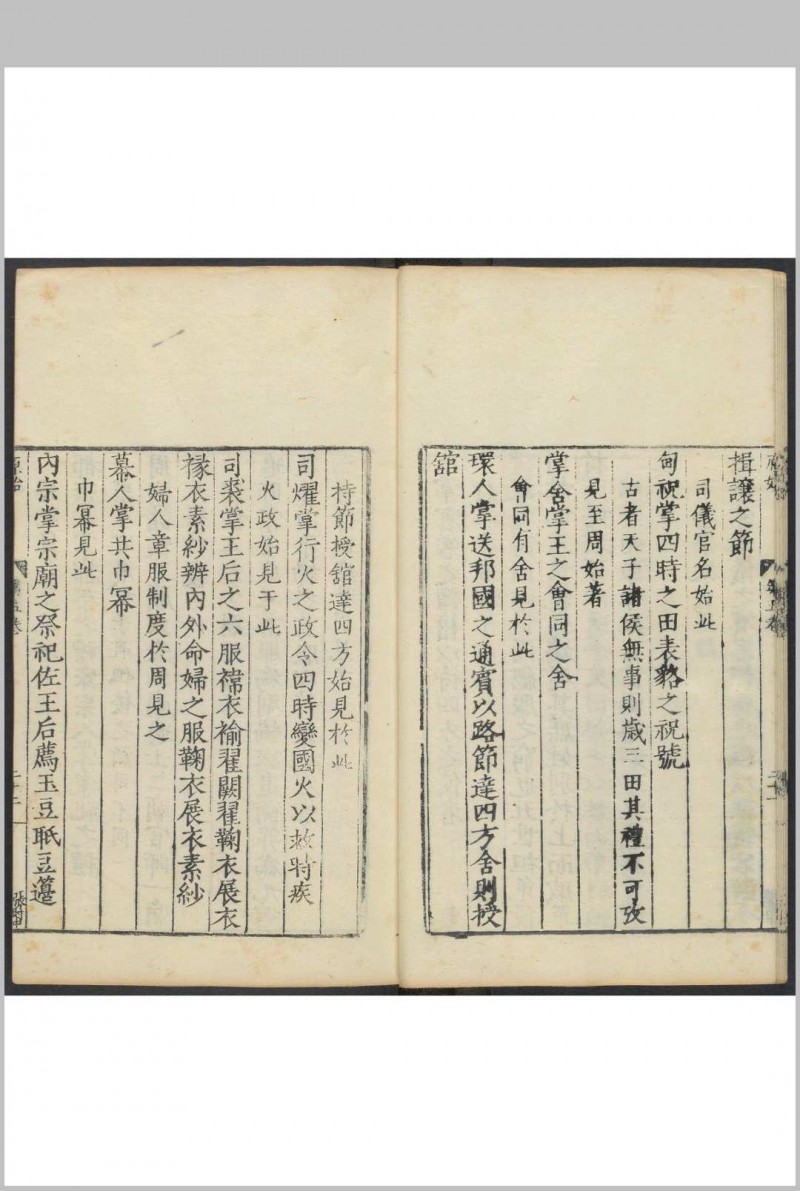 揖讓之節
司儀官名始此
甸祝掌四時之田表貉之祝號
古者天子諸侯無事則歲三田其禮不可攷
見至周始著
掌舍掌王之會同之舍
會同有舍見於此
環人掌送邦國之通賓以路節達四方舍則授
舘
持節授舘達四方始見於此
司爟掌行火之政令四時變國火以救時疾
火政始見于此
司裘掌王后之六服褘衣褕翟闕翟鞠衣展衣
褖衣素紗辨內外命婦之服鞠衣展衣素紗
婦人章服制度於周見之
幕人掌共巾冪
巾冪見此
內宗掌宗廟之祭祀佐王后薦玉豆眡豆籩
原始